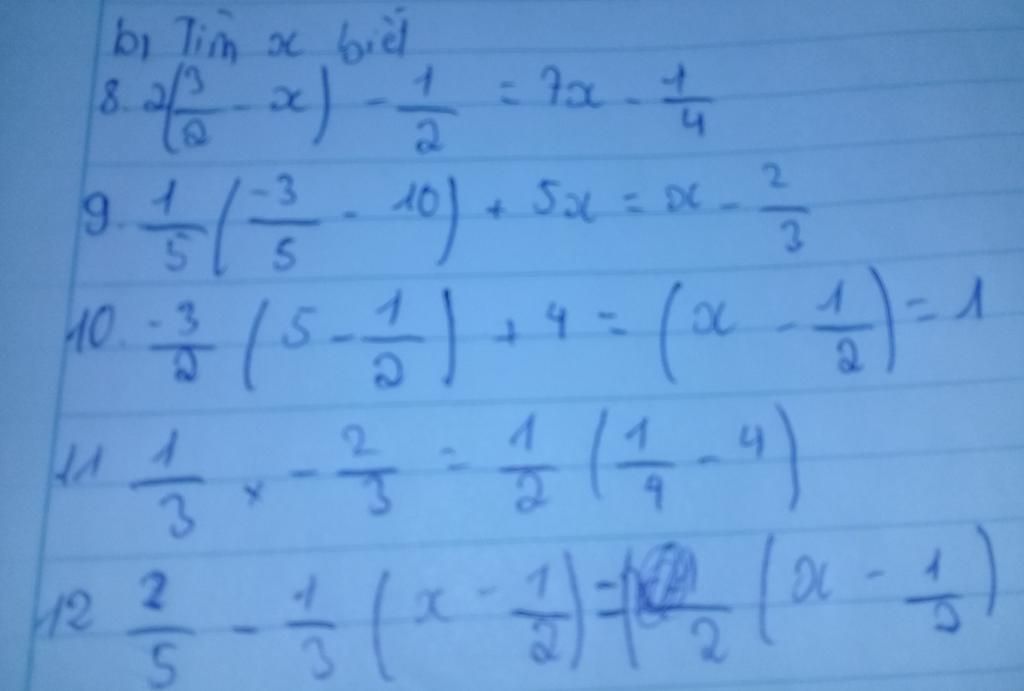 b, Tìm x biết
8. 2(3/2 - x) - 1/2 = 7x - 1/4
9. 1/5 (-3/5 - 10) + 5x = x - 2/3
10. -3/2 (5 - 1/2) + 4 = (x - 1/2) = 1
11 1/3 x - 2/3 = 1/2 (1/4 - 4)
12 2/5 - 1/3 (x - 1/2) = /2 (x - 1/2)